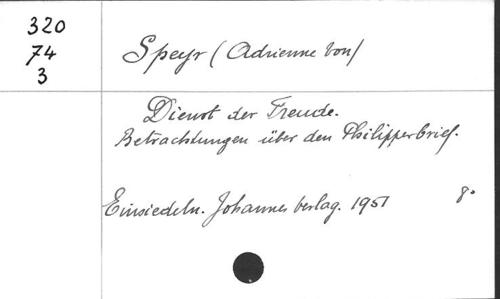 320
74
3
Speyr (Adrienne von)
Dienst der Freude.
Betrachtungen über den Philipperbrief.
Einsiedeln. Johannes verlag. 1951 8°